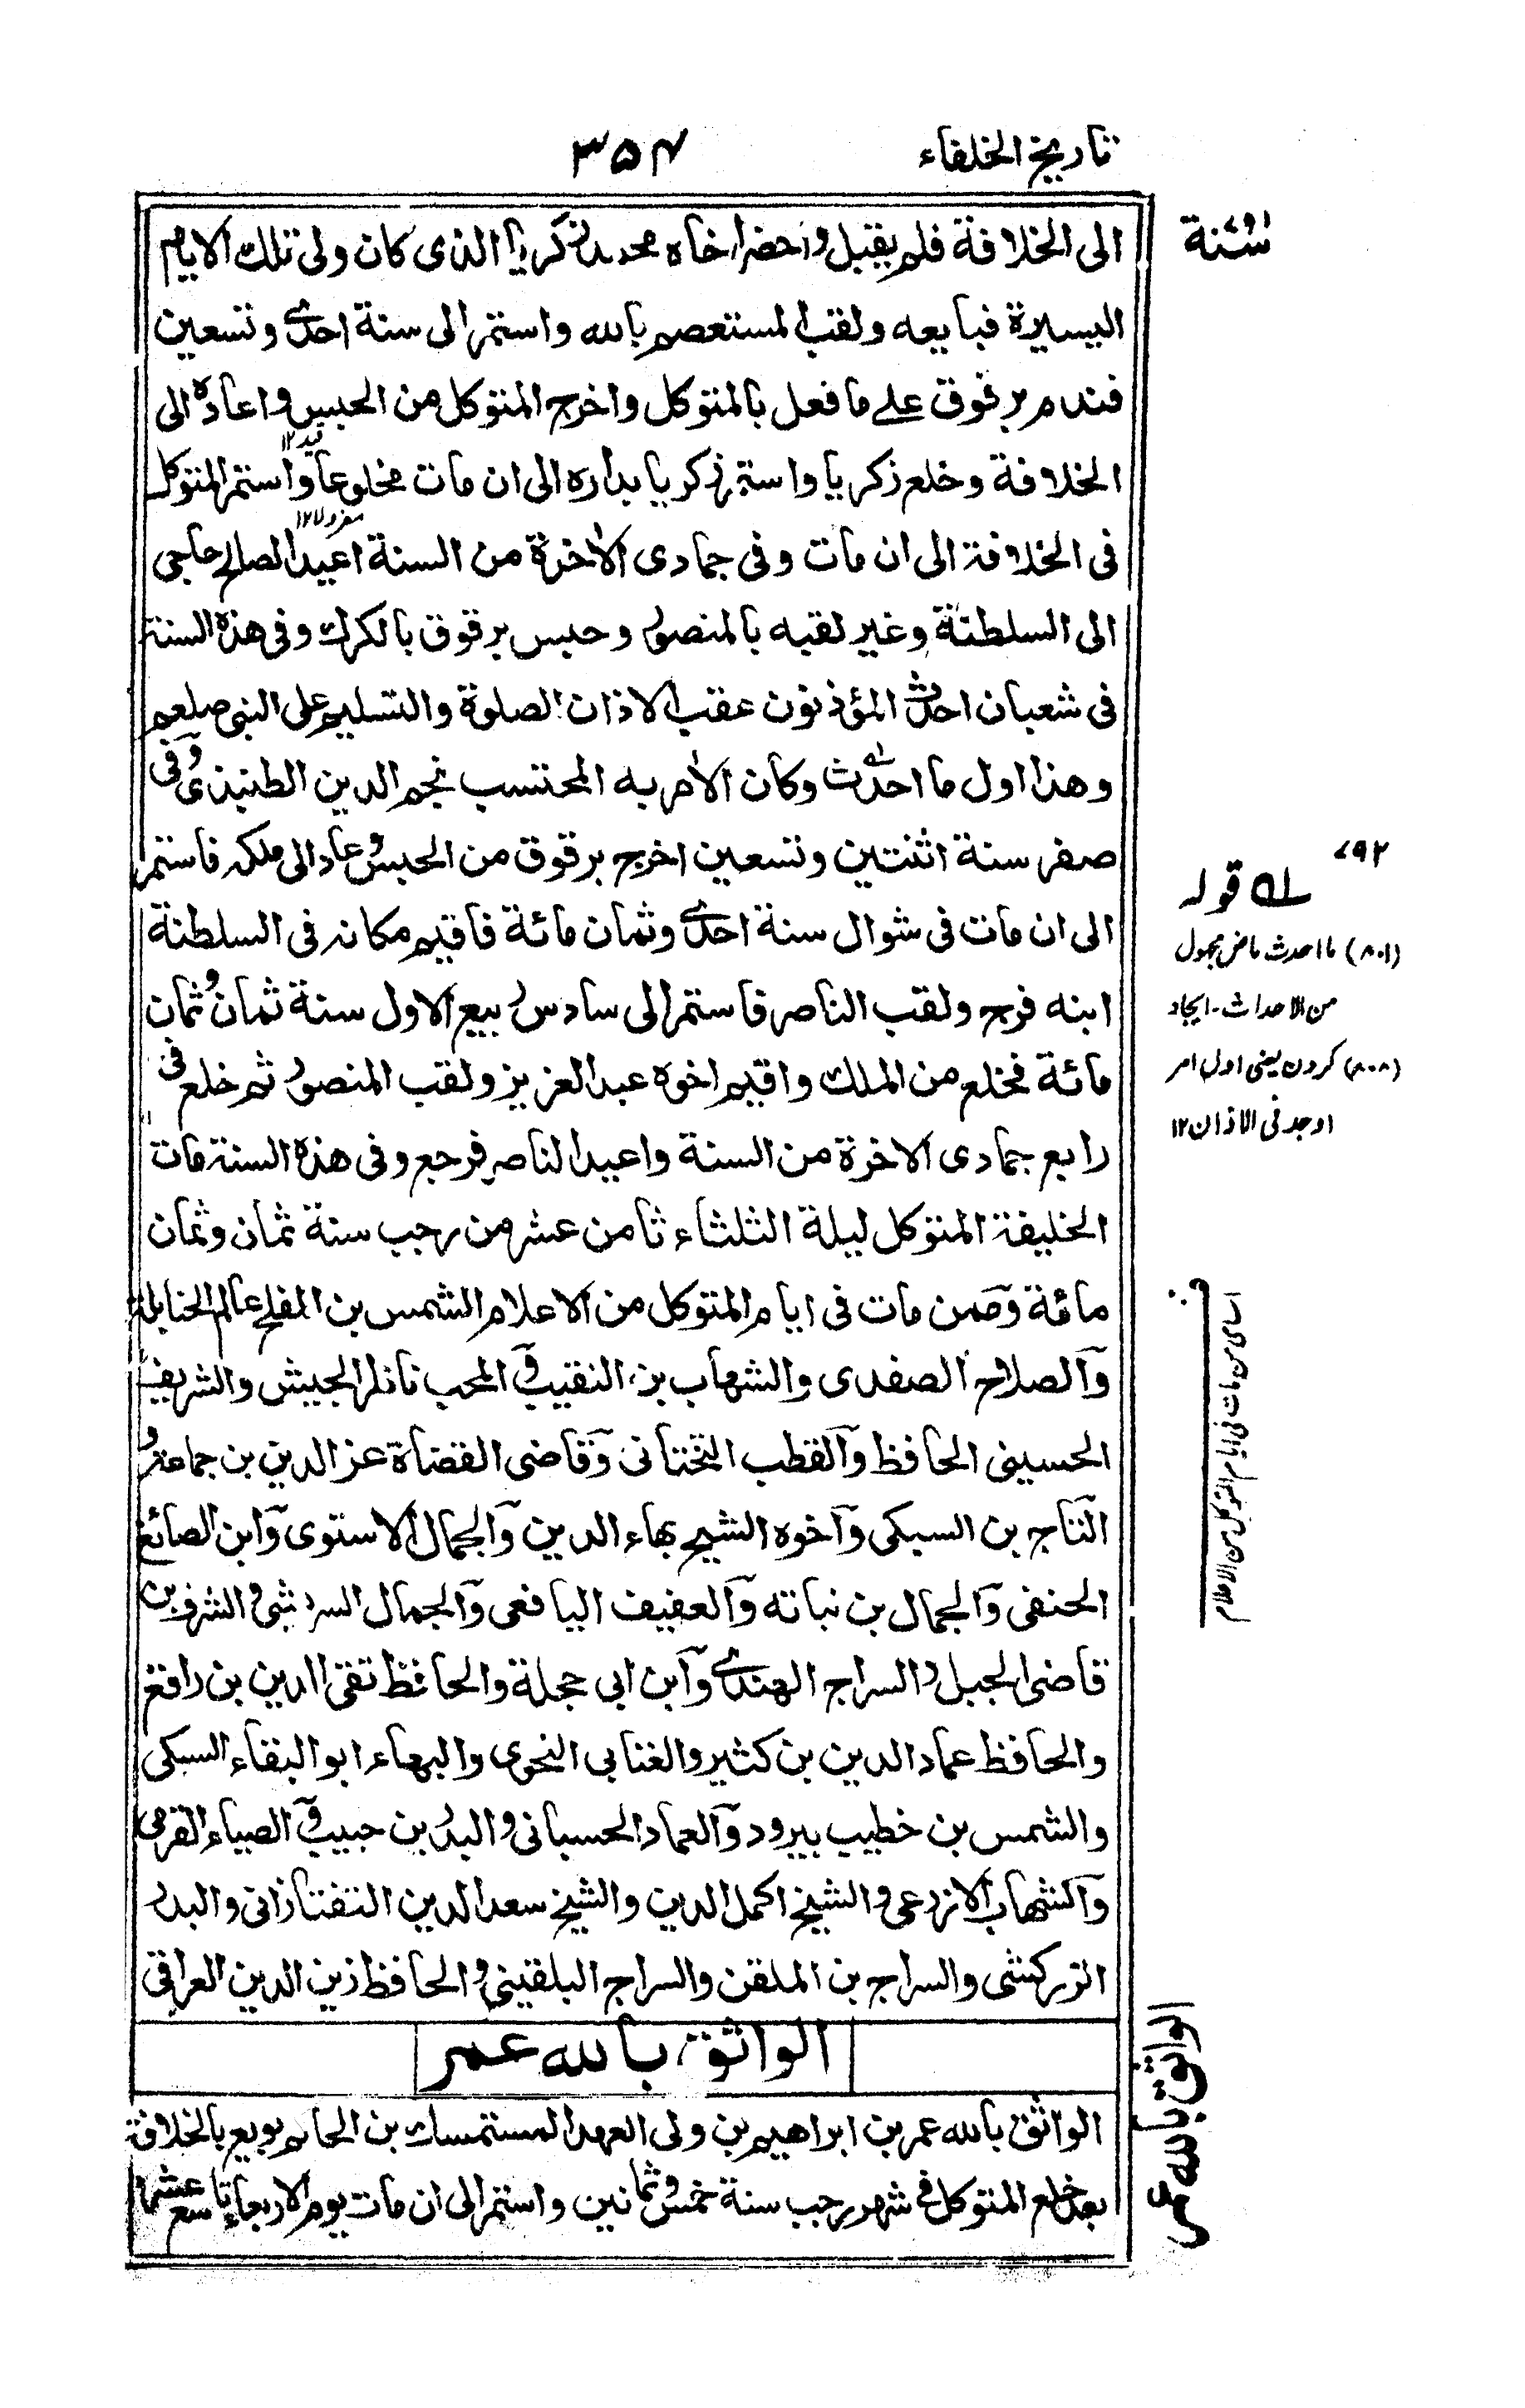 تاريخ الخلفاء
۳۵۴
سنة
الى الخلافة فلم يقبل واحضر اخاه محمد زكريا الذى كان ولى تلك الايام
اليسيرة فبايعه ولقب المستعصم بالله واستمر الى سنة احدى وتسعين
فندم برقوق على ما فعل بالمتوكل واخرج المتوكل من الحبس واعاده الى
الخلافة وخلع زكريا واستمر زكريا بداره الى ان مات مخلوعا واستمر المتوكل
فى الخلافة الى ان مات وفى جمادى الاخرة من السنة اعيد الصالح حاجى
الى السلطنة وغير لقبه بالمنصور وحبس برقوق بالكرك وفى هذه السنة
فى شعبان احدث المؤذنون عقب الاذان الصلوة والتسليم على النبى صلعم
وهذا اول ما احدث وكان الامر به المحتسب نجم الدين الطنبذى وفى
صفر سنة اثنتين وتسعين اخرج برقوق من الحبس وعاد الى ملكه فاستمر
الى ان مات فى شوال سنة احدى وثمان مائة فاقيم مكانه فى السلطنة
ابنه فرج ولقب الناصر فاستمر الى سادس ربيع الاول سنة ثمان وثمان
مائة فخلع من الملك واقيم اخوه عبد العزيز ولقب المنصور ثم خلع فى
رابع جمادى الاخرة من السنة واعيد الناصر فرجع وفى هذه السنة مات
الخليفة المتوكل ليلة الثلثاء ثامن عشر من رجب سنة ثمان وثمان
مائة وممن مات فى ايام المتوكل من الاعلام الشمس بن المفلح عالم الحنابلة
والصلاح الصفدى والشهاب بن النقيب و المحب ناظر الجيش والشريف
الحسينى الحافظ والقطب التحتانى وقاضى القضاة عز الدين بن جماعة و
التاج بن السبكى وآخوه الشيخ بهاء الدين والجمال الاسنوى وابن الصائغ
الحنفى والجمال بن نباته والعفيف اليافعى والجمال الشريشى والشرف بن
قاضى الجبل والسراج الهندى وابن ابى حجلة والحافظ تقى الدين بن رافع
والحافظ عماد الدين بن كثير والعنابى النحوى والبهاء ابو البقاء السبكى
والشمس بن خطيب بيرود والعماد الحسبانى والبدر بن حبيب و الضياء القرمى
والشهاب الازرعى والشيخ اكمل الدين والشيخ سعد الدين التفتازانى والبدر
الزركشى والسراج بن الملقن والسراج البلقينى والحافظ زين الدين العراقى
الواثق بالله عمر
الواثق بالله عمر بن ابراهيم بن ولى العهد المستمسك بن الحاكم بويع بالخلافة
بعد خلع المتوكل فى شهر رجب سنة خمس وثمانين واستمر الى ان مات يوم الاربعاء تاسع عشر
۷۹۲
له قوله
(۸۰۱) ما احدث ماض مجهول
من الاحداث - ايجاد
(۸۰۸) كردن يعنى اول امر
اوجد فى الاذان ۱۲
اسامى من مات فى ايام المتوكل من الاعلام
الواثق بالله عمر